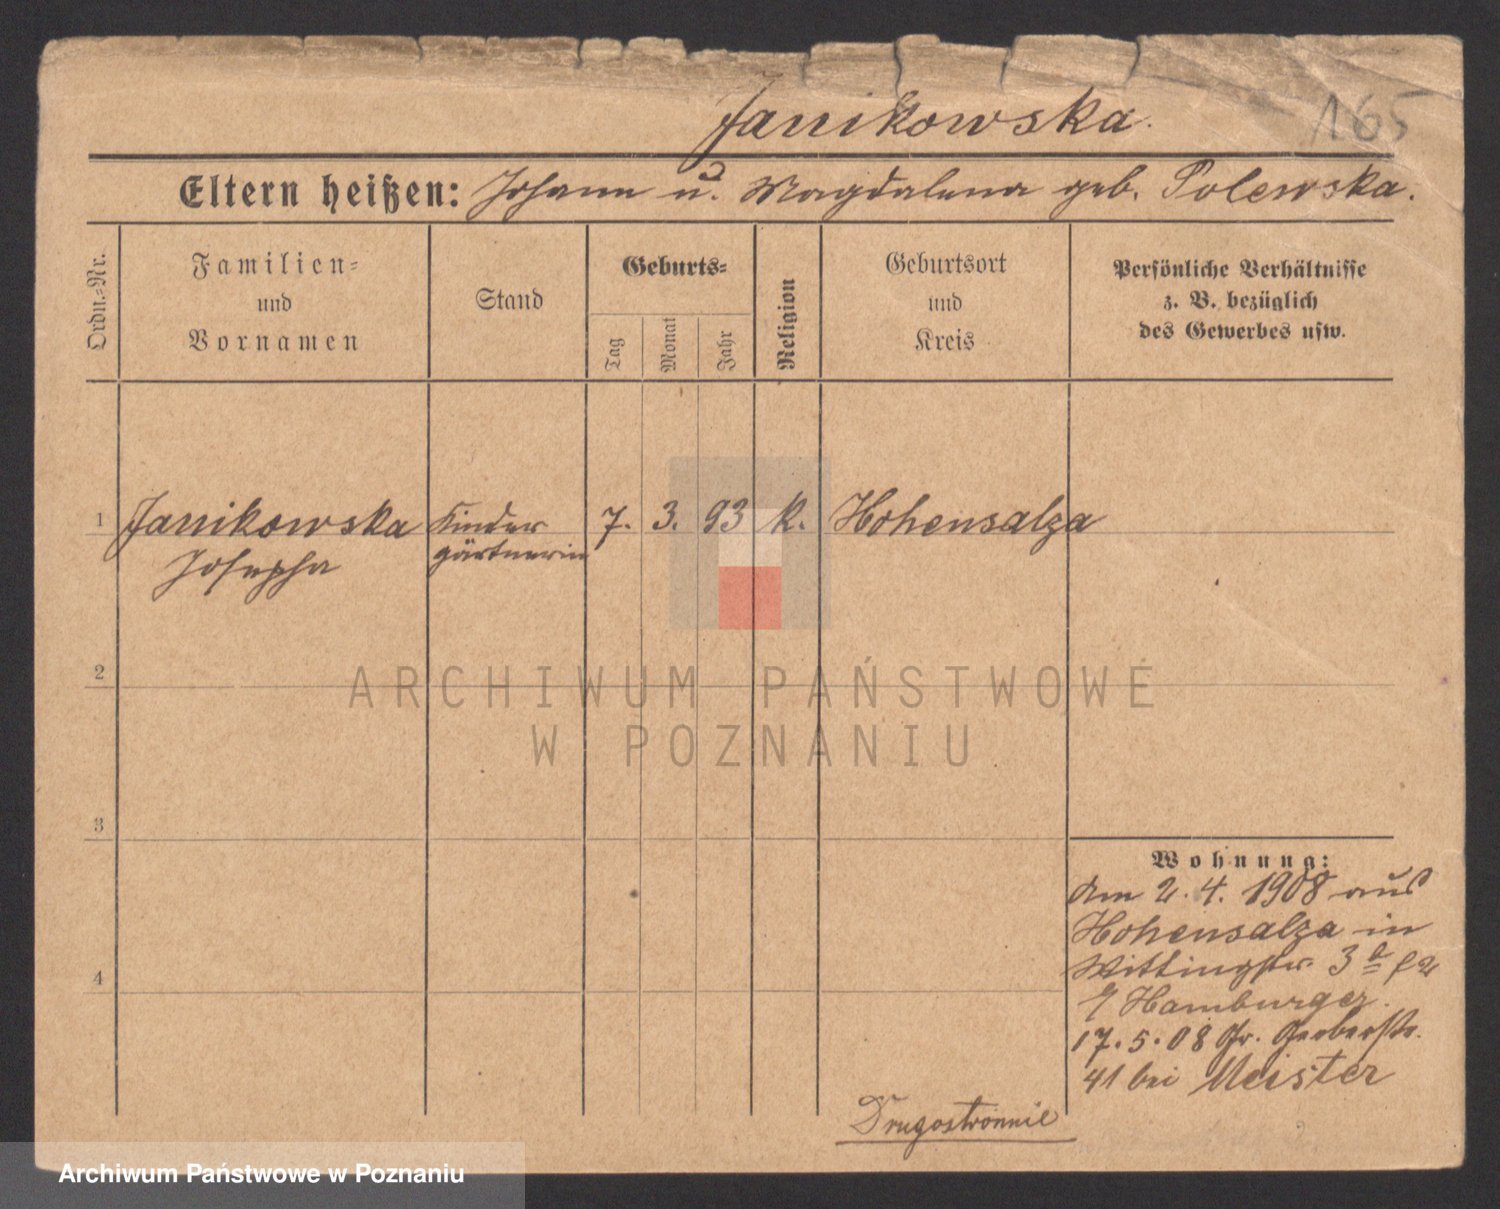 Janikowska.
165
Eltern heißen: Johann u. Magdalena geb. Polewska.
Ordn.-Nr.
Familien-
und
Vornamen
Stand
Geburts-
Tag
Monat
Jahr
Religion
Geburtsort
und
Kreis
Persönliche Verhältnisse
z. B. bezüglich
des Gewerbes usw.
1 Janikowska Kinder 7. 3. 93 k. Hohensalza
Josepha gärtnerin
2
ARCHIWUM PAŃSTWOWE
W POZNANIU
3
Wohnung:
Am 2. 4. 1908 aus
Hohensalza in
Wittingstr. 3
Hamburger.
17. 5. 08 Gr. Gerberstr.
41 bei Meister
4
Drugostronnie
Archiwum Państwowe w Poznaniu